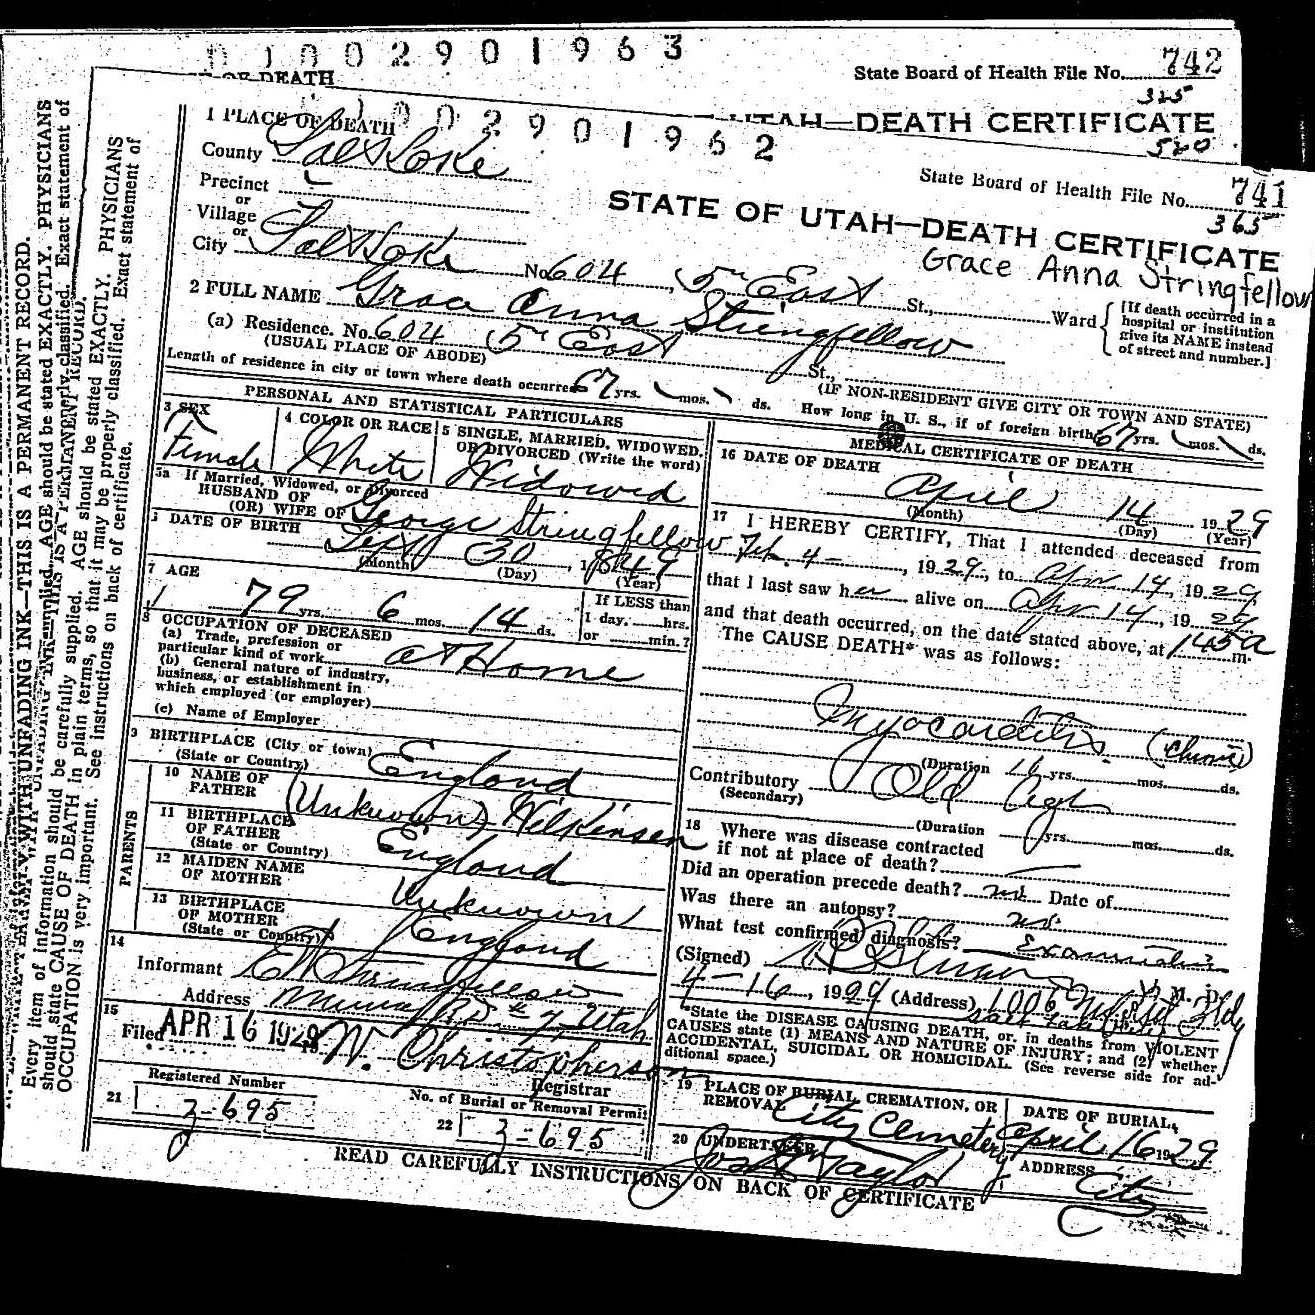 0 1 0 0 2 9 0 1 9 6 3
OF DEATH
State Board of Health File No. 742
325
UTAH—DEATH CERTIFICATE
520
0 0 2 9 0 1 9 6 2
State Board of Health File No. 741
365
STATE OF UTAH—DEATH CERTIFICATE
Grace Anna Stringfellow
1 PLACE OF DEATH
County Salt Lake
Precinct
or
Village
or
City Salt Lake No. 604, 5th East St., Ward
[If death occurred in a hospital or institution give its NAME instead of street and number.]
2 FULL NAME Grace Anna Stringfellow
(a) Residence. No. 604 5th East St.,
(USUAL PLACE OF ABODE) (IF NON-RESIDENT GIVE CITY OR TOWN AND STATE)
Length of residence in city or town where death occurred 67 yrs. mos. ds. How long in U. S., if of foreign birth 67 yrs. mos. ds.
PERSONAL AND STATISTICAL PARTICULARS
3 SEX Female
4 COLOR OR RACE White
5 SINGLE, MARRIED, WIDOWED, OR DIVORCED (Write the word) Widowed
5a If Married, Widowed, or Divorced
HUSBAND OF
(OR) WIFE OF George Stringfellow
DATE OF BIRTH Sept 30 1849
(Month) (Day) (Year)
7 AGE
79 yrs. 6 mos. 14 ds.
If LESS than
1 day. hrs.
or min.?
8 OCCUPATION OF DECEASED
(a) Trade, profession or
particular kind of work at Home
(b) General nature of industry,
business, or establishment in
which employed (or employer)
(c) Name of Employer
9 BIRTHPLACE (City or town)
(State or Country) England
PARENTS
10 NAME OF
FATHER (Unknown) Wilkinsen
11 BIRTHPLACE
OF FATHER
(State or Country) England
12 MAIDEN NAME
OF MOTHER Unknown
13 BIRTHPLACE
OF MOTHER
(State or Country) England
14
Informant Stringfellow
Address Murray RD #7, Utah
15
Filed APR 16 1929 W. Christopherson
Registrar
Registered Number
21 z-695
No. of Burial or Removal Permit
22 z-695
MEDICAL CERTIFICATE OF DEATH
16 DATE OF DEATH
April 14 1929
(Month) (Day) (Year)
17 I HEREBY CERTIFY, That I attended deceased from
Feb. 4 -, 1929, to Apr 14, 1929
that I last saw her alive on Apr 14, 1929
and that death occurred, on the date stated above, at 145 a m.
The CAUSE DEATH* was as follows:
Myocarditis (chronic)
(Duration yrs. mos. ds.
Contributory Old Age
(Secondary)
(Duration yrs. mos. ds.
18 Where was disease contracted
if not at place of death?
Did an operation precede death? no Date of
Was there an autopsy? no
What test confirmed diagnosis? Examination
(Signed) M. D.
4-16, 1929 (Address) 1006
Salt Lake City
*State the DISEASE CAUSING DEATH, or, in deaths from VIOLENT
CAUSES state (1) MEANS AND NATURE OF INJURY; and (2) whether
ACCIDENTAL, SUICIDAL OR HOMICIDAL. (See reverse side for ad-
ditional space.)
19 PLACE OF BURIAL, CREMATION, OR
REMOVAL City Cemetery
DATE OF BURIAL,
April 16 1929
20 UNDERTAKER Taylor
ADDRESS City
READ CAREFULLY INSTRUCTIONS ON BACK OF CERTIFICATE
WITH UNFADING INK—THIS IS A PERMANENT RECORD.
Every item of information should be carefully supplied. AGE should be stated EXACTLY. PHYSICIANS
should state CAUSE OF DEATH in plain terms, so that it may be properly classified. Exact statement of
OCCUPATION is very important. See instructions on back of certificate.